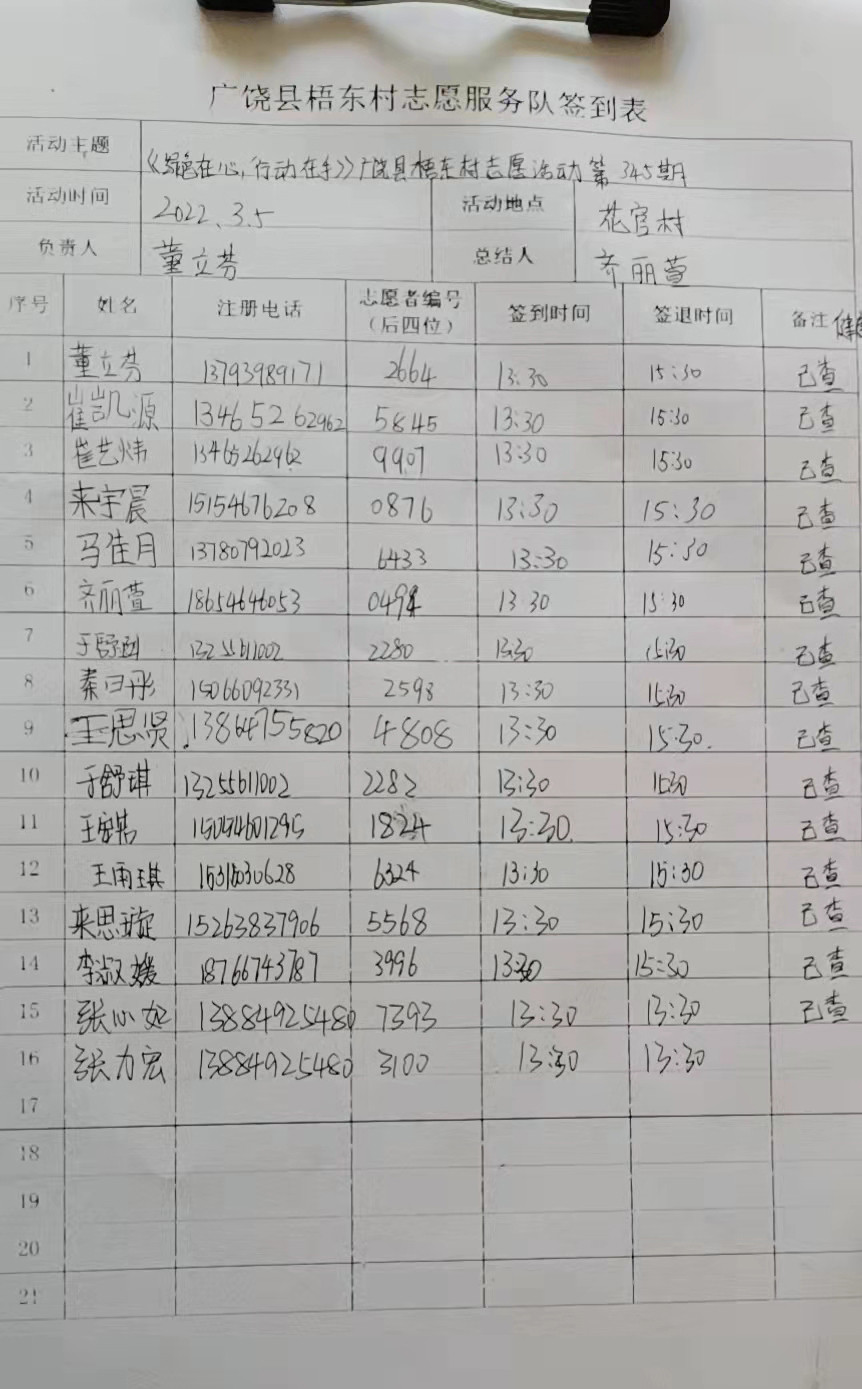 广饶县梧东村志愿服务队签到表
活动主题 《绿色在心,行动在手》广饶县梧东村志愿活动第345期
活动时间 2022.3.5 活动地点 花官村
负责人 董立芬 总结人 齐丽萱
序号 姓名 注册电话 志愿者编号(后四位) 签到时间 签退时间 备注
1 董立芬 13793989171 2664 13:30 15:30 已查
2 崔凯源 13465262962 5845 13:30 15:30 已查
3 崔艺炜 13465262962 9907 13:30 15:30 已查
4 来宇晨 15154676208 0876 13:30 15:30 已查
5 马佳月 13780792023 6433 13:30 15:30 已查
6 齐丽萱 18654646053 13:30 15:30 已查
7 于舒 13255611002 2280 13:30 15:30 已查
8 秦曰彤 15066092331 2598 13:30 15:30 已查
9 王思贤 13864755820 4808 13:30 15:30 已查
10 于舒琪 13255611002 2282 13:30 15:30 已查
11 王 1824 13:30 15:30 已查
12 王雨琪 6324 13:30 15:30 已查
13 来思璇 15263837906 5568 13:30 15:30 已查
14 李淑媛 18766743787 3996 13:30 15:30 已查
15 张心如 13884925480 7393 13:30 13:30 已查
16 张力宏 13884925480 3100 13:30 13:30
17
18
19
20
21